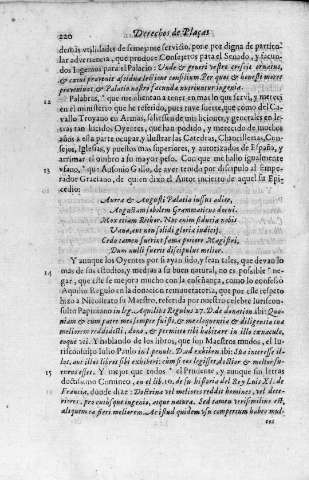 220 Derechos de Plaças
demàs vtilidades de semejante servicio, pone por digna de particu-
lar advertencia, que produce Consejeros para el Senado, y facun-
dos Ingenios para el Palacio: Unde & generi vestro crescit ornatus,
& curiæ provenit assidua lectione consilium. Per quos & honesti mores
proveniunt, & Palatio nostro facunda nutriuntur ingenia.
12 Palabras, que me alientan à tener en mas lo que servi, y mereci
en el ministerio que he referido, pues tuve suerte, que como del Ca-
vallo Troyano en Armas, saliessen de mis liciones, y generales en le-
tras tan lucidos Oyentes, que han podido, y merecido de muchos
años à esta parte ocupar, y ilustrar las Catedras, Chancillerias, Con-
sejos, Iglesias, y puestos mas superiores, y autorizados de España, y
arrimar el ombro à su mayor peso. Con que me hallo igualmente
13 vfano, que Ausonio Galo, de aver tenido por discipulo al Empe-
rador Graciano, de quien dixo el Autor incierto de aquel su Epi-
cedio:
Aurea & Augusti Palatia iussus adire,
Augustam sobolem Grammaticus docui.
Mox etiam Rhetor. Nec enim fiducia nobis
Vana, aut non solidi gloria iudicij.
Cedo tamen fuerint fama potiore Magistri,
Dum nulli fuerit discipulus melior.
14 Y aunque los Oyentes por si ayan sido, y sean tales, que devan lo
mas de sus estudios, y medras à su buen natural, no es posible ne-
gar, que este se mejora mucho con la enseñança, como lo confesso
Aquilio Regulo en la donacion remuneratoria, que por este respeto
hizo à Nicostrato su Maestro, referida por nuestro celebre Iuriscon-
sulto Papiniano in leg. Aquilius Regulus 27. D. de donation. ibi: Quo-
niam & cum patre meo semper fuisti, & me eloquentia & diligentia tua
meliorem reddidisti, dono, & permitto tibi habitare in illo cœnaculo,
eoque vti. Y hablando de los libros, que son Maestros mudos, el Iu-
risconsulto Iulio Paulo in l. penult. D. ad exhiben. ibi: Sua interesse il-
los, aut illas libros sibi exhiberi: cum si eos legisset, doctior & melior fu-
15 turus esset. Y mejor que todos el Prudente, y aunque sin letras
doctissimo Comineo, en el lib. 10. de su historia del Rey Luis XI. de
Francia, donde dize: Doctrina vel meliores reddit homines, vel dete-
riores, pro cuiusque ingenio, eoque natura. Sed tamen verisimilius est,
aliquem ea fieri meliorem. Ac istud quidem vsu compertum habes mul-
tis